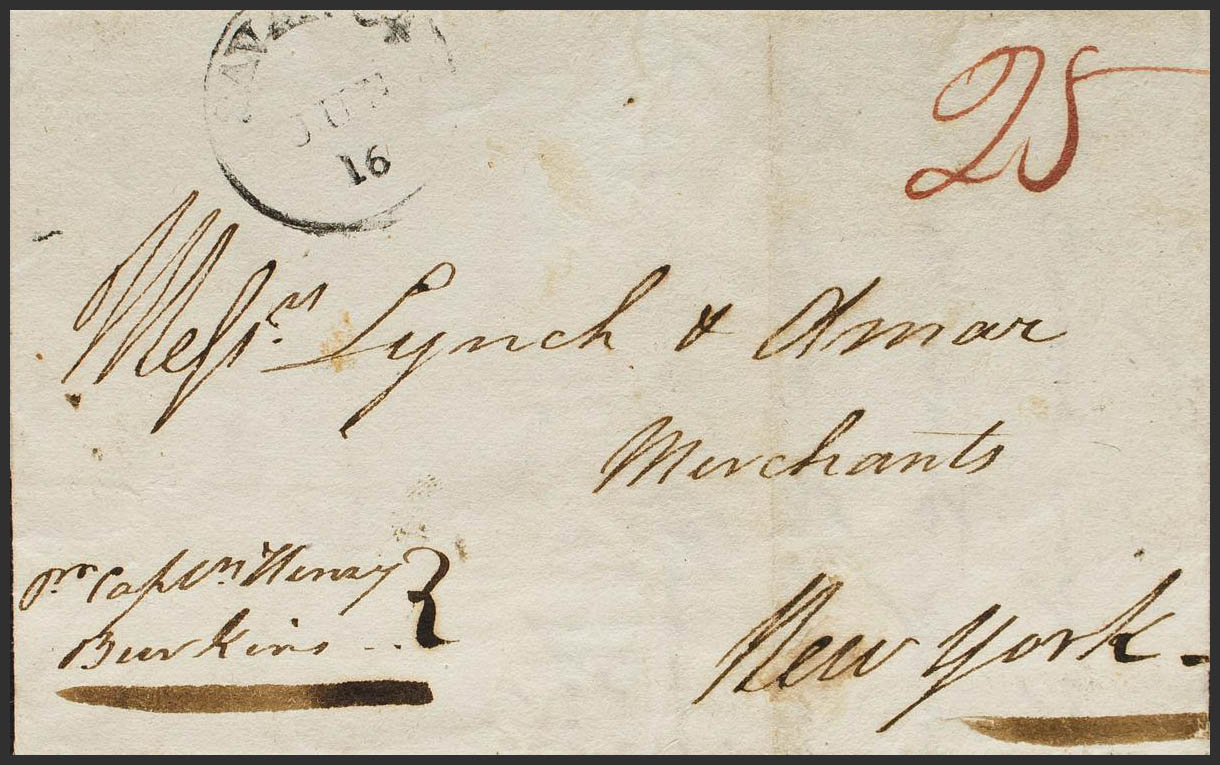 JUN
16
25
Messrs Lynch & Amar
Merchants
pr Captn Henry
Burkins
New York.